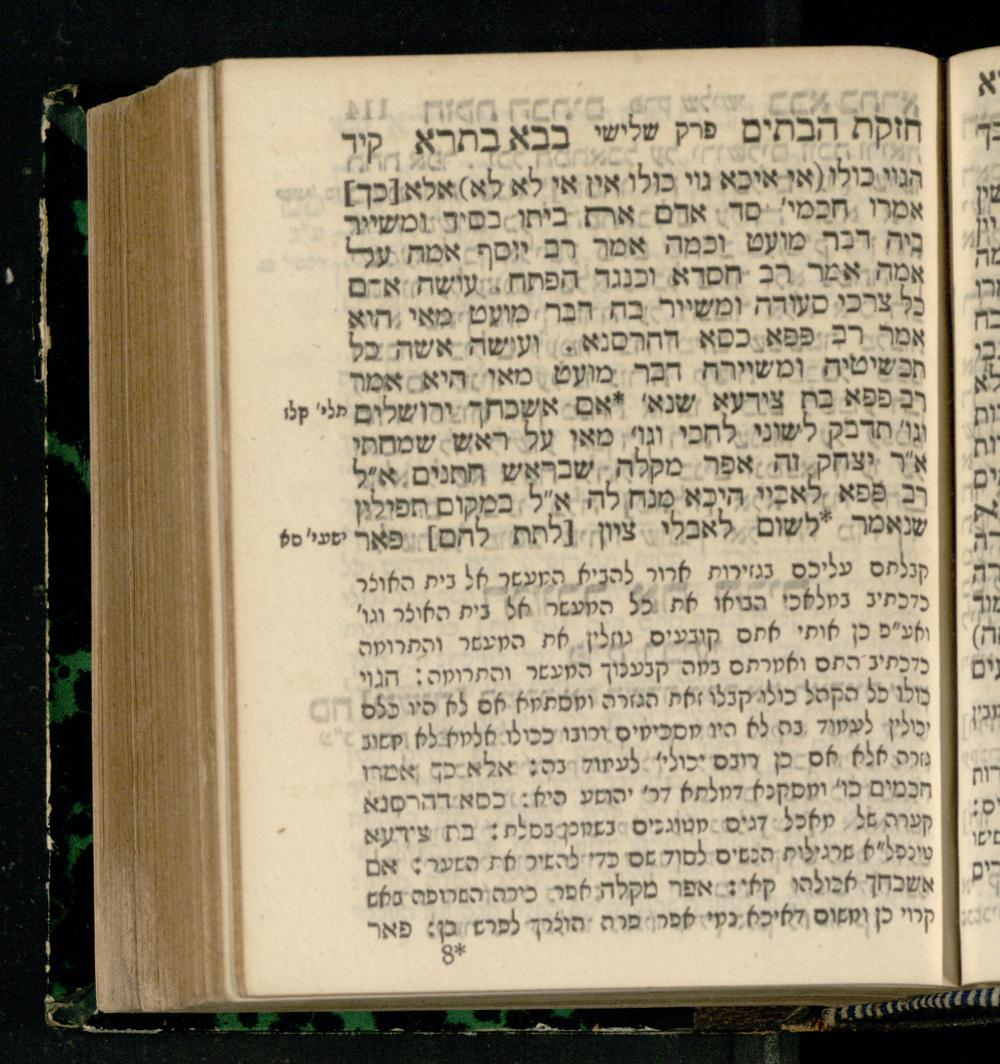 חזקת הבתים פרק שלישי בבא בתרא קיד
הגוי כולו (אי איכא גוי כולו אין אי לא לא) אלא [כך]
אמרו חכמי' סד אדם את ביתו בסיד ומשייר
ביה דבר מועט וכמה אמר רב יוסף אמה על
אמה אמר רב חסדא וכנגד הפתח. עושה אדם
כל צרכי סעודה ומשייר בה דבר מועט מאי היא
אמר רב פפא כסא דהרסנא. ועושה אשה כל
תכשיטיה ומשיירה דבר מועט מאי היא אמר
רב פפא בת צידעא שנא' *אם אשכחך ירושלים תלי' קלז
וגו' תדבק לשוני לחכי וגו' מאי על ראש שמחתי
א"ר יצחק זה אפר מקלה שבראש חתנים א"ל
רב פפא לאביי היכא מנח לה א"ל במקום תפילין
שנאמר *לשום לאבלי ציון [לתת להם] פאר ישעי' סא
קבלתם עליכם בגזירות ארור להביא המעשר אל בית האוצר
כדכתיב במלאכי הביאו את כל המעשר אל בית האוצר וגו'
ואע"פ כן אותי אתם קובעים גוזלין את המעשר והתרומה
כדכתיב התם ואמרתם במה קבענוך המעשר והתרומה: הגוי
כולו כל הקהל כולו קבלו זאת הגזרה ומסתמא אם לא היו כלם
יכולין לעמוד בה לא היו מסכימים ורובו ככולו אלמא לא חשוב
גזרה אלא אם כן רובם יכולי' לעמוד בה: אלא כך אמרו
חכמים כו' ומסקנא דמלתא דר' יהושע היא: כסא דהרסנא
קערה של מאכל דגים מטוגנים בשמנן בסלת: בת צידעא
טינפל"א שרגילות הנשים לסוד שם כדי להשיר את השער: אם
אשכחך אכולהו קאי: אפר מקלה אפר כירה השרופה באש
קרוי כן ומשום דאיכא נמי אפר פרה הוצרך לפרש כן: פאר
8*